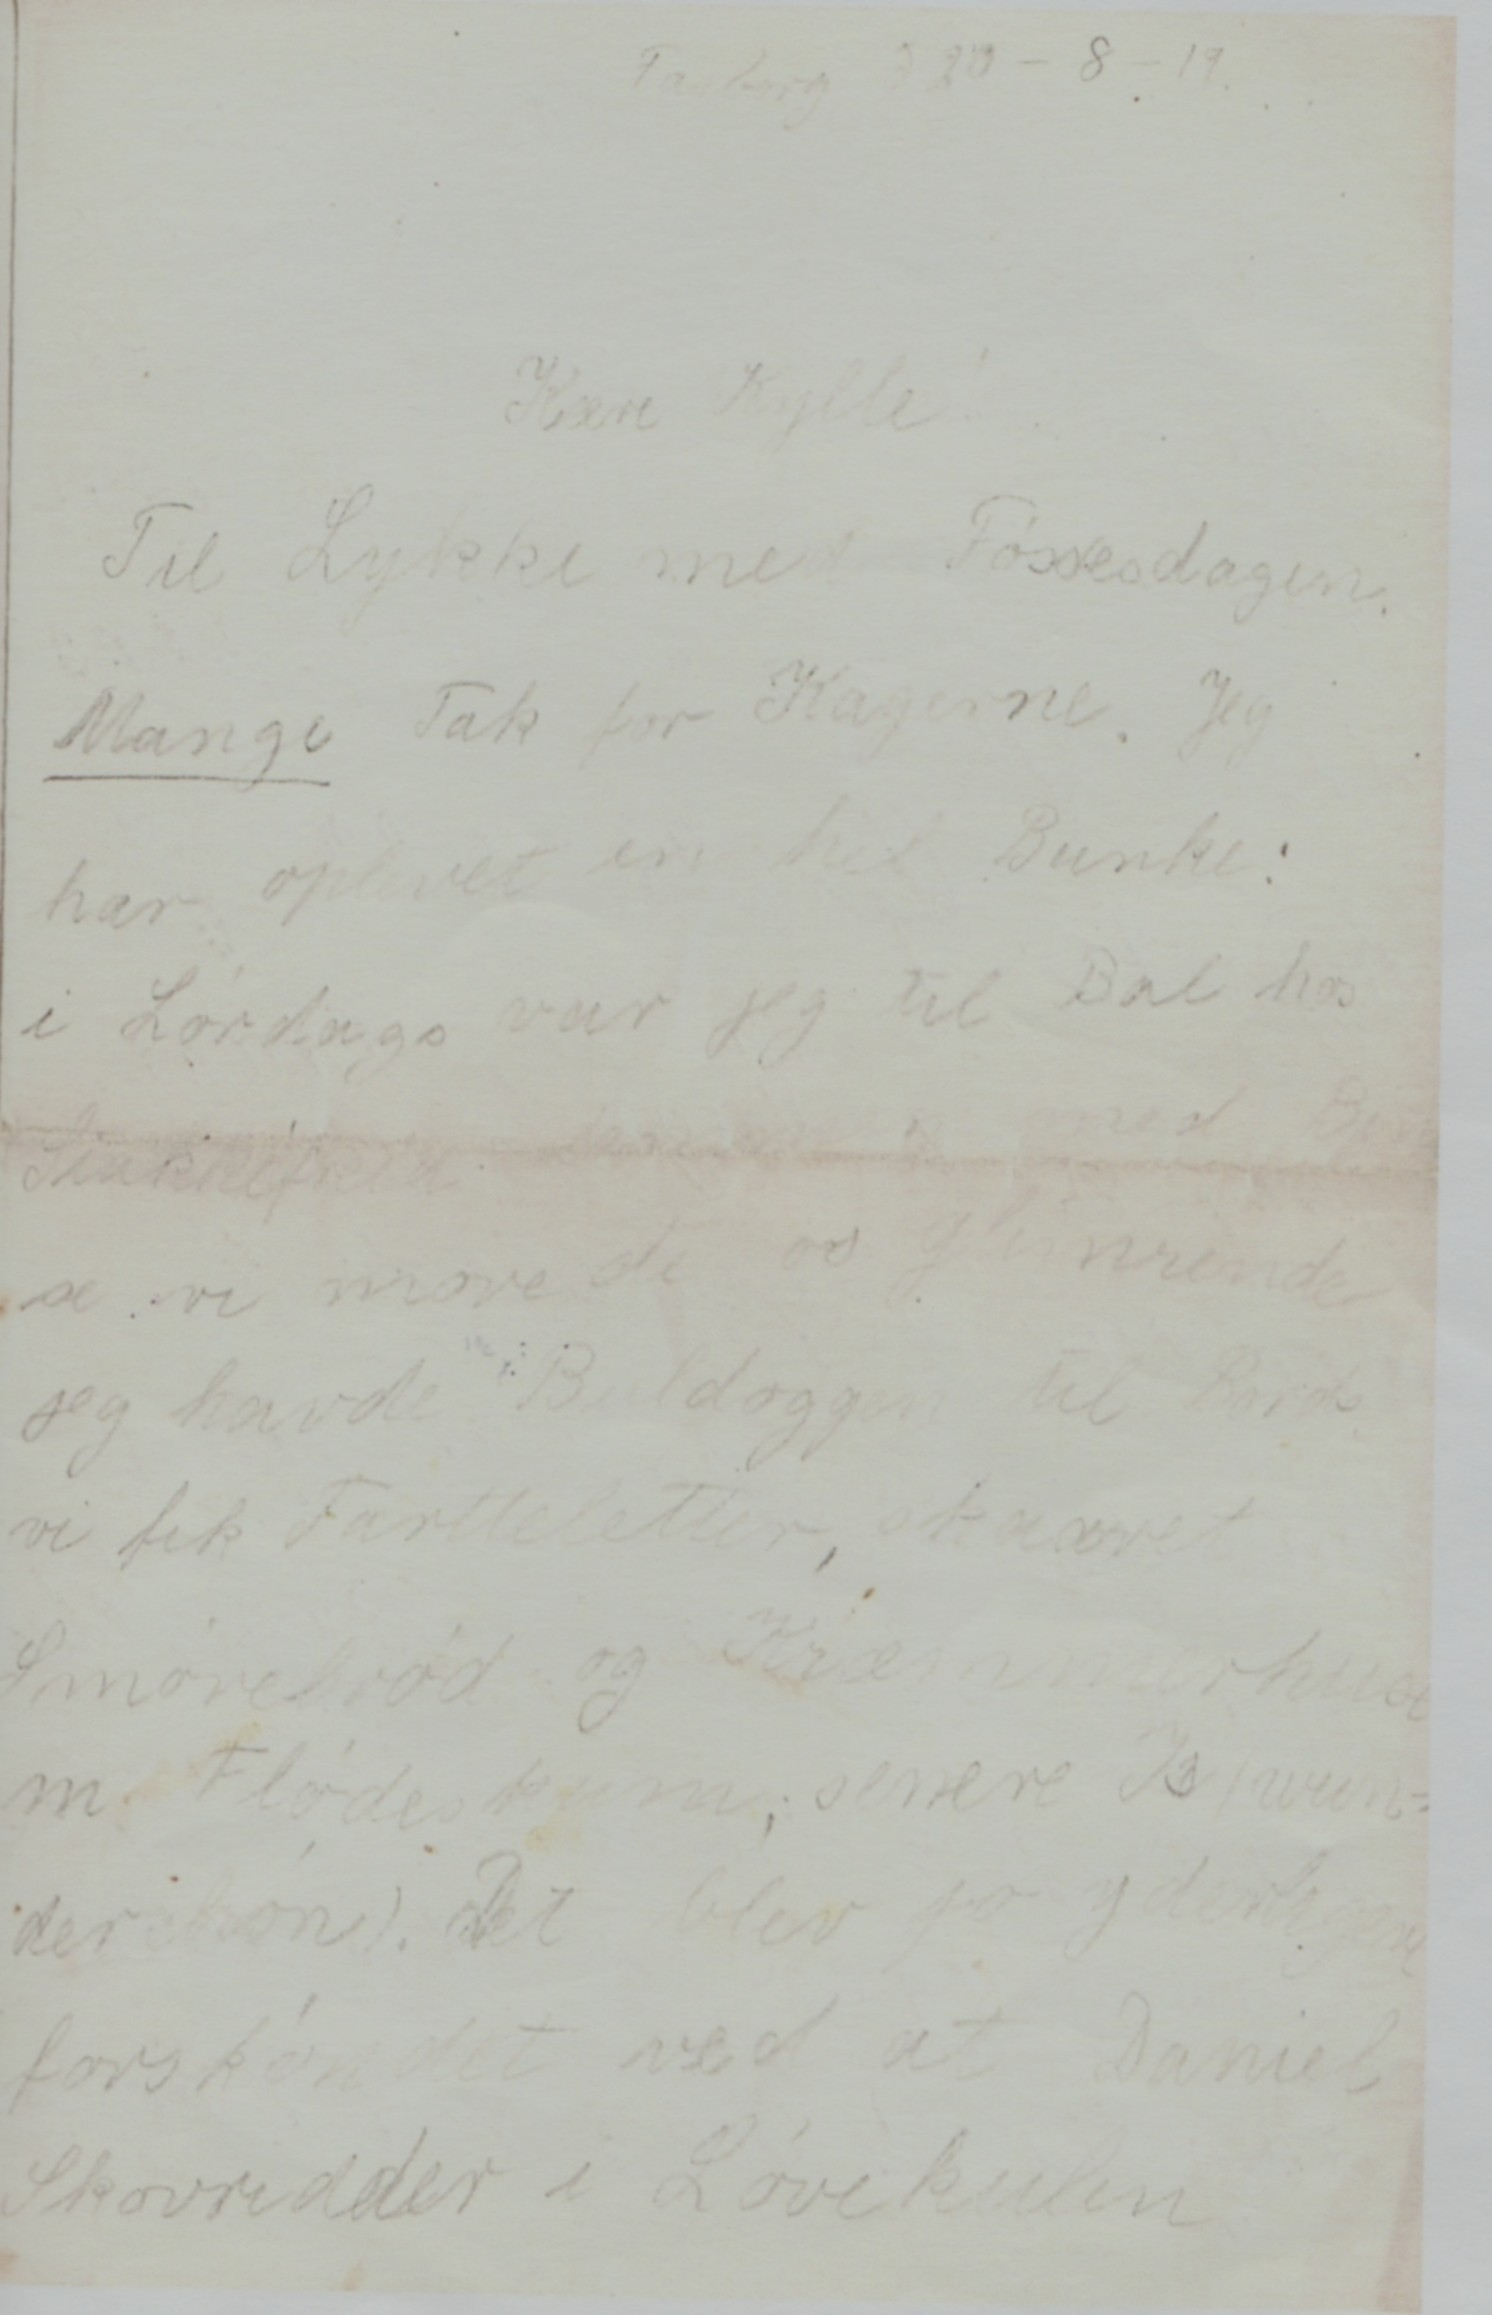 20 - 8 - 19.
Kære Kylle!
Til Lykke med Fósxesdagen.
Mange Tak for Kagerne. Jeg
har oplevet en hel Bunke:
i Lørdags var jeg til Bal hos
med
se vi morede os glimrende
jeg havde Buldoggen til Bords
vi fik Tartteletter, skaaret
Smørebrød og Kræmmerhuse
m. Flødeskum, senere Is (wun=
derschön). Det blev jo yderligere
forskönnet ved at Daniel
Skovridder i Løvekulen